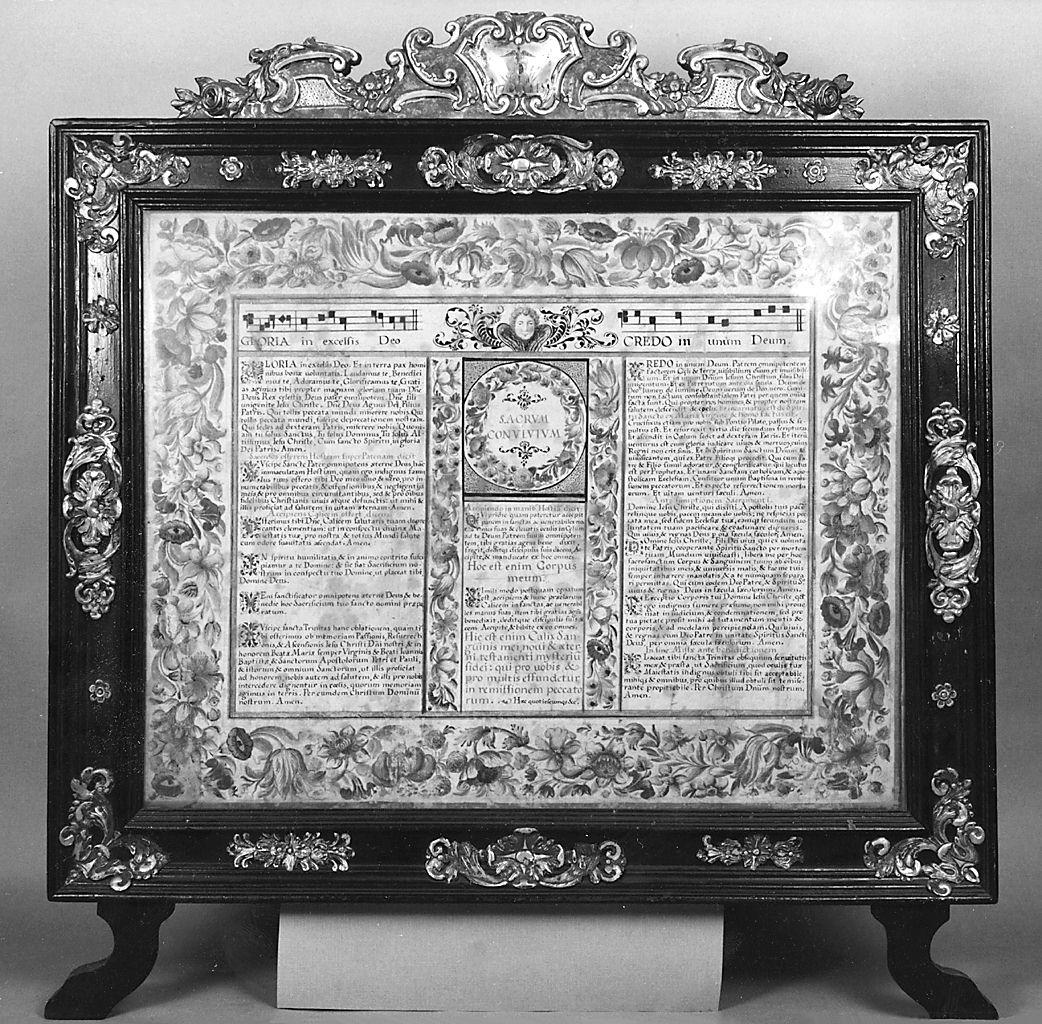 GLORIA in excelsis Deo
CREDO in unum Deum.
GLORIA in excelsis Deo. Et in terra pax homi
nibus bonæ voluntatis. Laudamus te, Benedici
mus te, Adoramus te, Glorificamus te, Grati
as agimus tibi propter magnam gloriam tuam: Dñe
Deus Rex cælestis, Deus pater omnipotens. Dñe fili
unigenite Iesu Christe. Dñe Deus Agnus Dei, Filius
Patris. Qui tollis peccata mundi, miserere nobis. Qui
tollis peccata mundi, suscipe deprecationem nostram.
Qui sedes ad dexteram Patris, miserere nobis. Quoni
am tu solus Sanctus. Tu solus Dominus. Tu solus Al
tissimus, Iesu Christe, Cum Sancto Spiritu, in gloria
Dei Patris. Amen.
Sacerdos offerens Hostiam super Patenam dicit
SVscipe Sancte Pater omnipotens æterne Deus, hãc
immaculatam Hostiam, quam ego indignus famu
lus tuus offero tibi Deo meo vivo & vero, pro in
numerabilibus peccatis, & offensionibus & negligentijs
meis & pro omnibus circumstantibus, sed & pro oĩbus
fidelibus Christianis vivis atque defunctis: ut mihi &
illis proficiat ad salutem in vitam æternam. Amen.
Accipiens Calicem offert dicens
OFferimus tibi Dñe, Calicem salutaris tuam depre
cantes clementiam: ut in conspectu divinæ Ma
iestatis tuæ, pro nostra, & totius Mundi salute
cum odore suavitatis ascendat. Amen.
IN spiritu humilitatis & in animo contrito susci
piamur a te Domine: & sic fiat Sacrificium no
strum in conspectu tuo Domine ut placeat tibi
Domine Deus.
VEni sanctificator omnipotens æterne Deus & be
nedic hoc Sacrificium tuo sancto nomini præpa
ratum
SVscipe sancta Trinitas hanc oblationem, quam ti
bi offerimus ob memoriam Passionis, Resurrecti
onis, & Ascensionis Iesu Christi Dñi nostri: & in
honorem Beatæ Mariæ semper Virginis & Beati Ioannis
Baptistæ & Sanctorum Apostolorum Petri et Pauli,
& istorum & omnium Sanctorum, ut illis proficiat
ad honorem, nobis autem ad salutem, & illi pro nobis
intercedere dignentur in cælis, quorum memoriam
agimus in terris. Per eundem Christum Dominũ
nostrum. Amen.
SACRVM
CONVIVIVM
Accipiendo in manib. Hostiã dicit
Hoc est enim Corpus
meum.
SImili modo postquam cœnatum
est accipiens & hunc præclarum
Calicem in sanctas, ac venerabi
les manus suas, item tibi gratias agens
benedixit, deditque discipulis suis di
cens, Accipite, & bibite ex eo omnes.
Hic est enim Calix San
guinis mei, novi & æter
ni testamenti mysteriũ
fidei: qui pro vobis &
pro multis effundetur
in remissionem peccato
rum. Hæc quotiescumq; &c.
CREDO in unum Deum. Patrem omnipotentem
factorem Cæli & terræ, visibilium omnium et invisibili
um. Et in unum Dñum Iesum Christum, filiũ Dei
unigenitum: Et ex Patre natum ante omnia sæcula. Deum de
Deo, lumen de lumine, Deum verum de Deo vero. Geni
tum non factum, consubstantialem Patri per quem omnia
facta sunt. Qui propter nos homines, & propter nostram
salutem descendit de cœlis. Et incarnatus est de Spiri
tu Sancto ex Maria Virgine & homo factus est.
Crucifixus etiam pro nobis sub Pontio Pilato, passus & se
pultus est. Et resurrexit tertia die secundum scripturas.
Et ascendit in Cælum sedet ad dexteram Patris. Et iterũ
venturus est cum gloria iudicare vivos & mortuos, cuius
Regni non erit finis. Et in Spiritum Sanctum Dñum &
vivificantem, qui ex Patre Filioq; procedit. Qui cum Pa
tre & Filio simul adoratur, & conglorificatur, qui locutus
est per Prophetas. Et unam Sanctam catholicam & apo
stolicam Ecclesiam. Confiteor unum Baptisma in remis
sionem peccatorum. Et expecto resurrectionem mortu
orum. Et vitam venturi sæculi. Amen.
Ante sumptionem Sacramenti.
Domine Iesu Christe, qui dixisti Apostolis tuis pacẽ
relinquo vobis, pacem meam do vobis; ne respicias pec
cata mea, sed fidem Ecclesiæ tuæ, eamq; secundum vo
luntatem tuam pacificare & coadunare digneris.
Qui vivis & regnas Deus p oĩa sæcula sæculor. Amen.
DOmine Iesu Christe, Fili Dei vivi qui ex volunta
te Patris, cooperante Spiritu Sancto per mortem
tuam, Mundum vivificasti, libera me per hoc
sacrosanctum Corpus & Sanguinem tuum ab oĩbus
iniquitatibus meis, & universis malis, & fac me tuis
semper inhærere mandatis & a te numquam separa
ri permittas. Qui cum eodem Deo Patre, & Spiritu Stõ
vivis & regnas Deus in sæcula sæculorum. Amen.
PErceptio Corporis tui Domine Iesu Christe, qđ
ego indignus sumere præsumo, non mihi prove
niat in iudicium, & condemnationem, sed pro
tua pietate prosit mihi ad tutamentum mentis &
corporis & ad medelam percipiendam. Qui vivis,
& regnas, cum Deo Patre in unitate Spiritus Sancti
Deus, per omnia sæcula sæculorum. Amen.
In fine Missæ ante benedictionem
PLaceat tibi sancta Trinitas obsequium servitutis
meæ & præsta, ut Sacrificium, quod oculis tuæ
Maiestatis indignus obtuli tibi sit acceptabile,
mihiq; & omnibus, pro quibus illud obtuli sit te mise
rante propitiabile. Per Christum Dñum nostrum.
Amen.